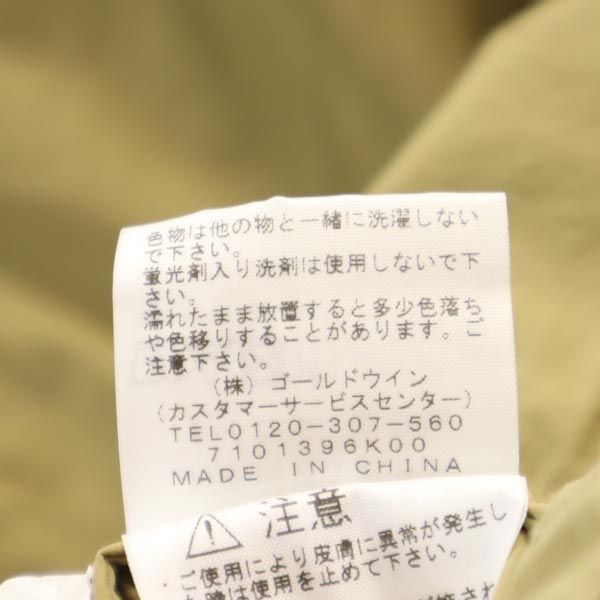 色物は他の物と一緒に洗濯しない
で下さい。
蛍光剤入り洗剤は使用しないで下
さい。
濡れたまま放置すると多少色落ち
や色移りすることがあります。ご
注意下さい。
(株) ゴールドウイン
(カスタマーサービスセンター)
TEL0120-307-560
7101396K00
MADE IN CHINA
注意
・ご使用により皮膚に異常が発生し
は使用を止めて下さい。